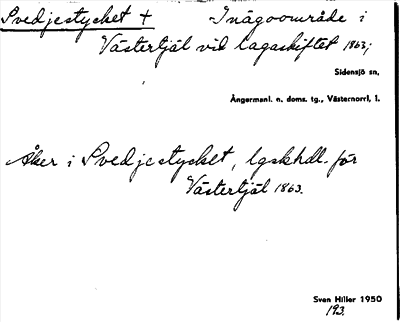 Svedjestycket + Inägoområde i
Västertjäl vid lagaskiftet 1863;
Sidensjö sn,
Ångermanl. n. doms. tg., Västernorrl. l.
Åker i Svedjestycket, lgskhdl. för
Västertjäl 1863.
Sven Hiller 1950
193.